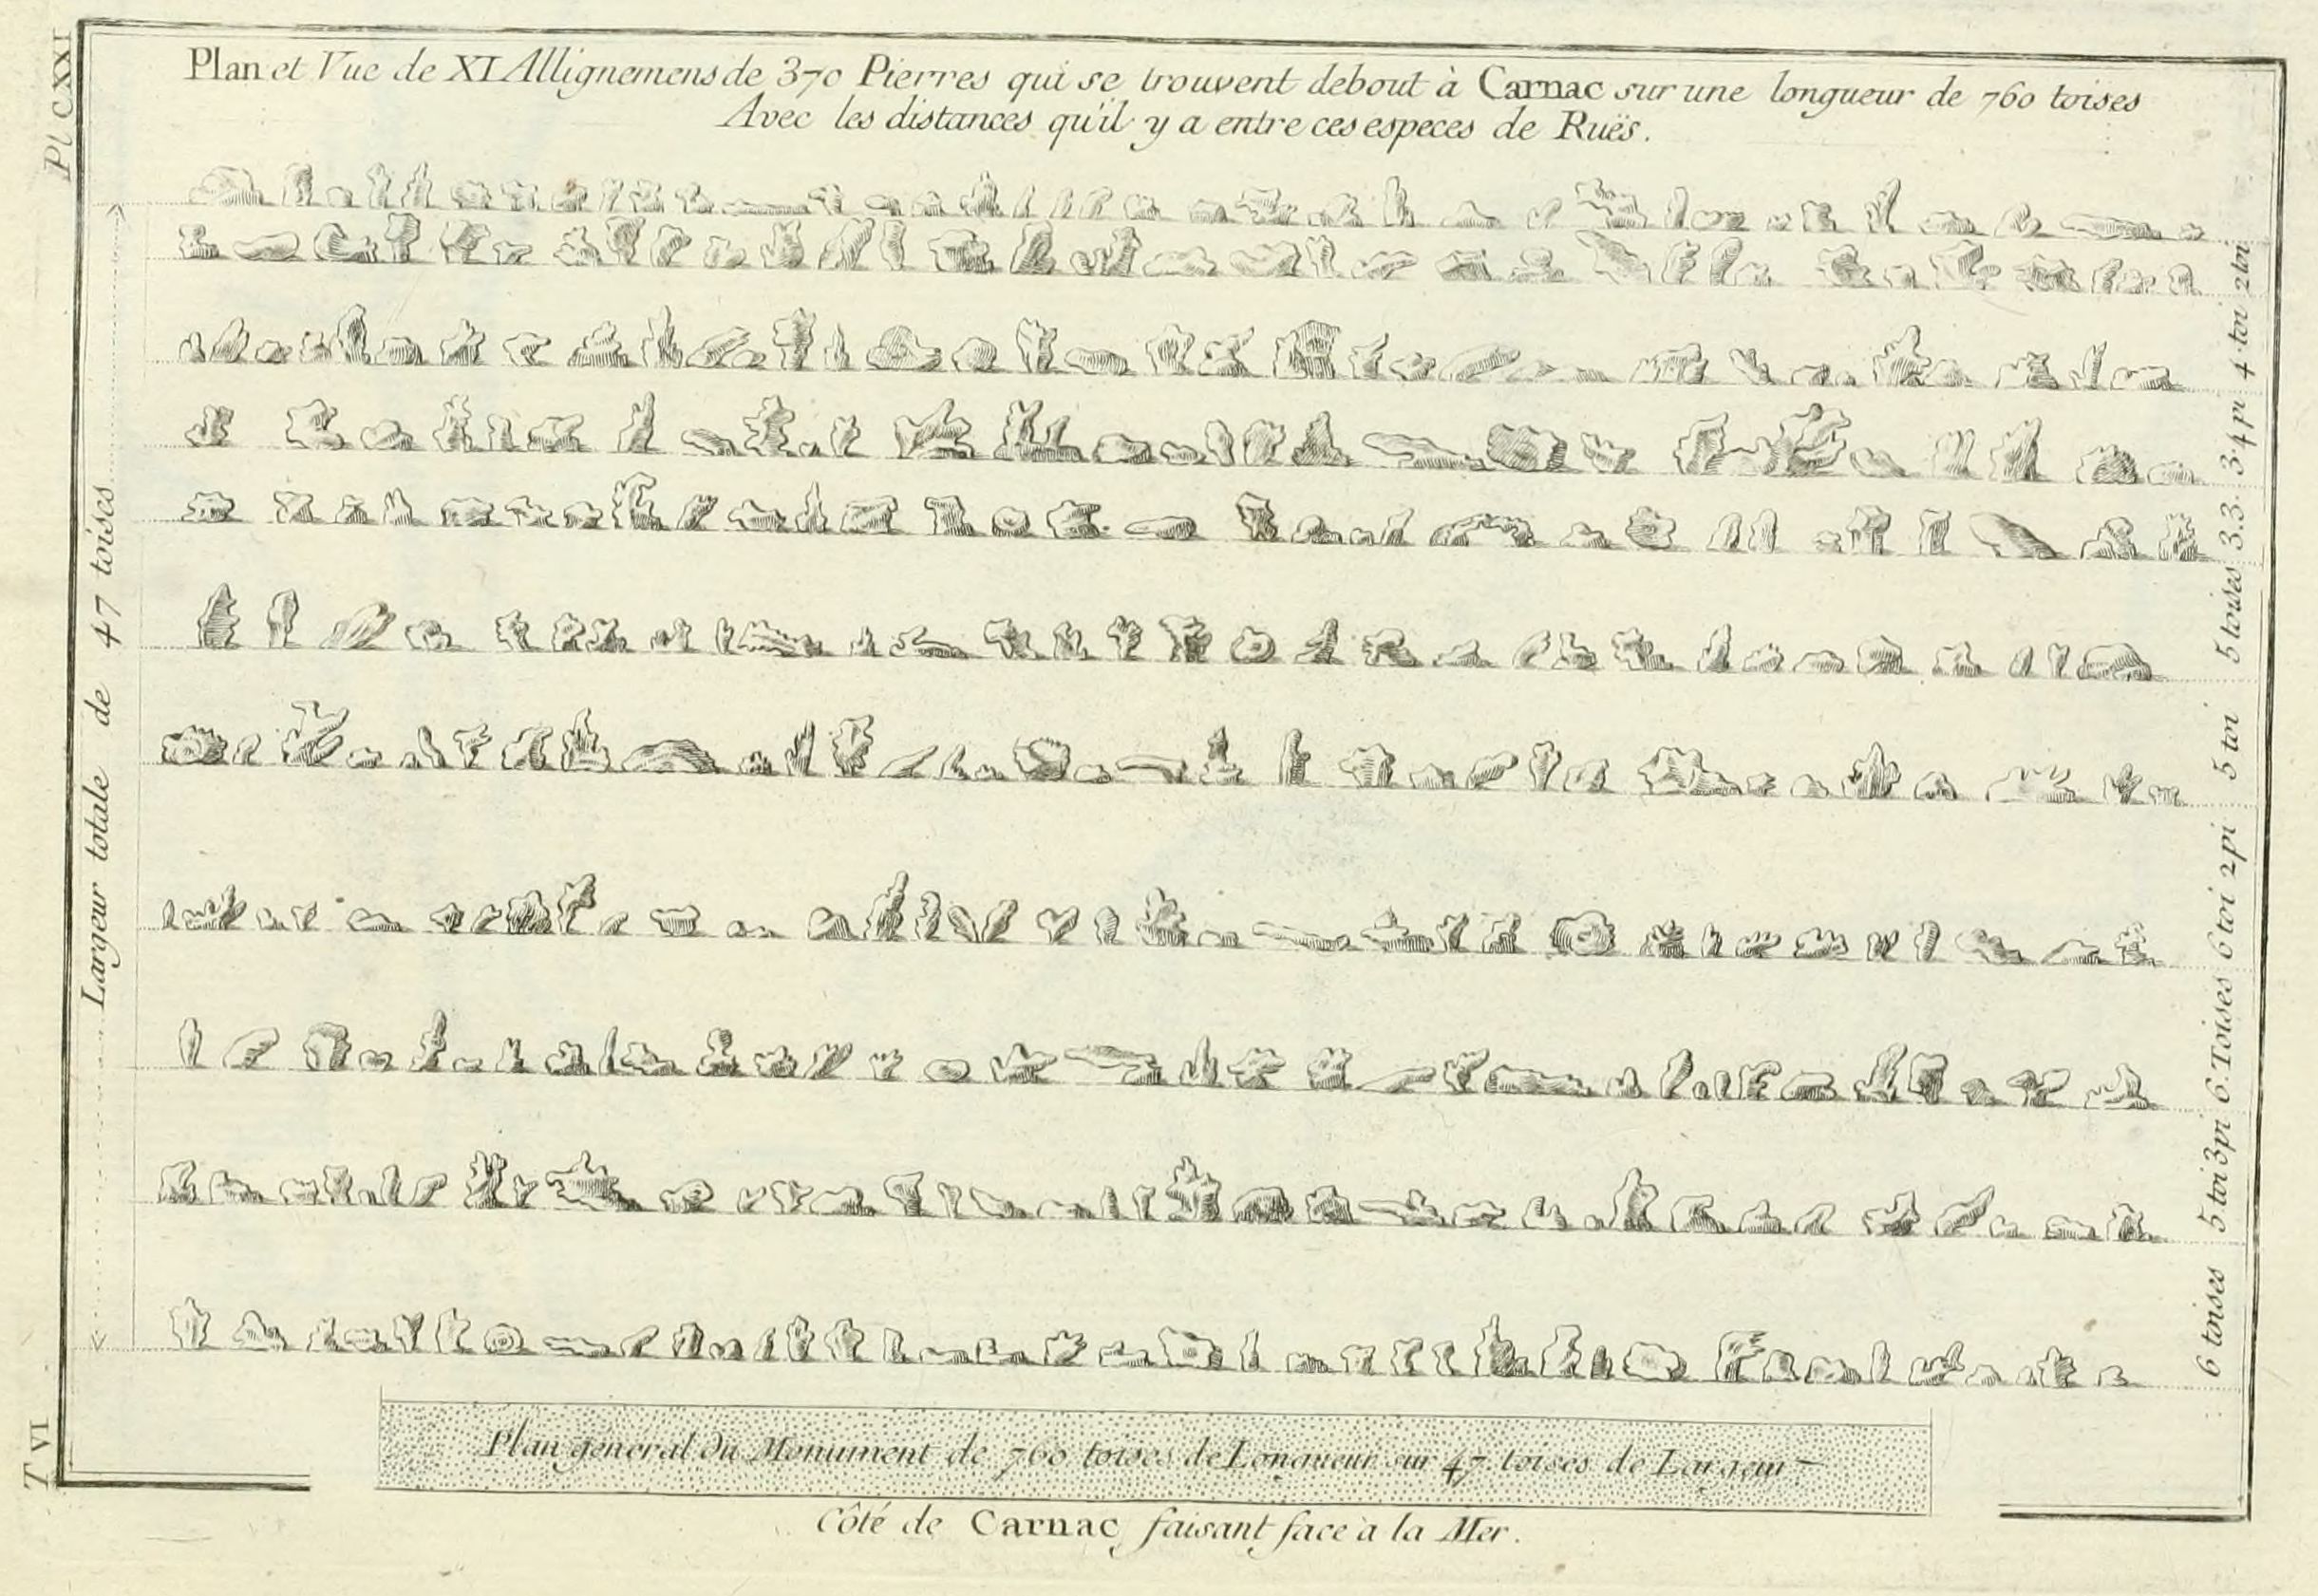 Pl CXXI
Plan et Vue de XI Allignemens de 370 Pierres qui se trouvent debout à Carnac sur une longueur de 760 toises
Avec les distances qu'il y a entre ces especes de Ruës.
2 toi
4 toi
3.4 pi
3.3.
5 toises
5 toi
6 toi 2 pi
6. Toises
5 toi 3 pi
6 toises
Largeur totale de 47 toises
Plan général du Monument de 760 toises de Longueur sur 47. toises de Largeur
T VI
Côté de Carnac faisant face à la Mer.